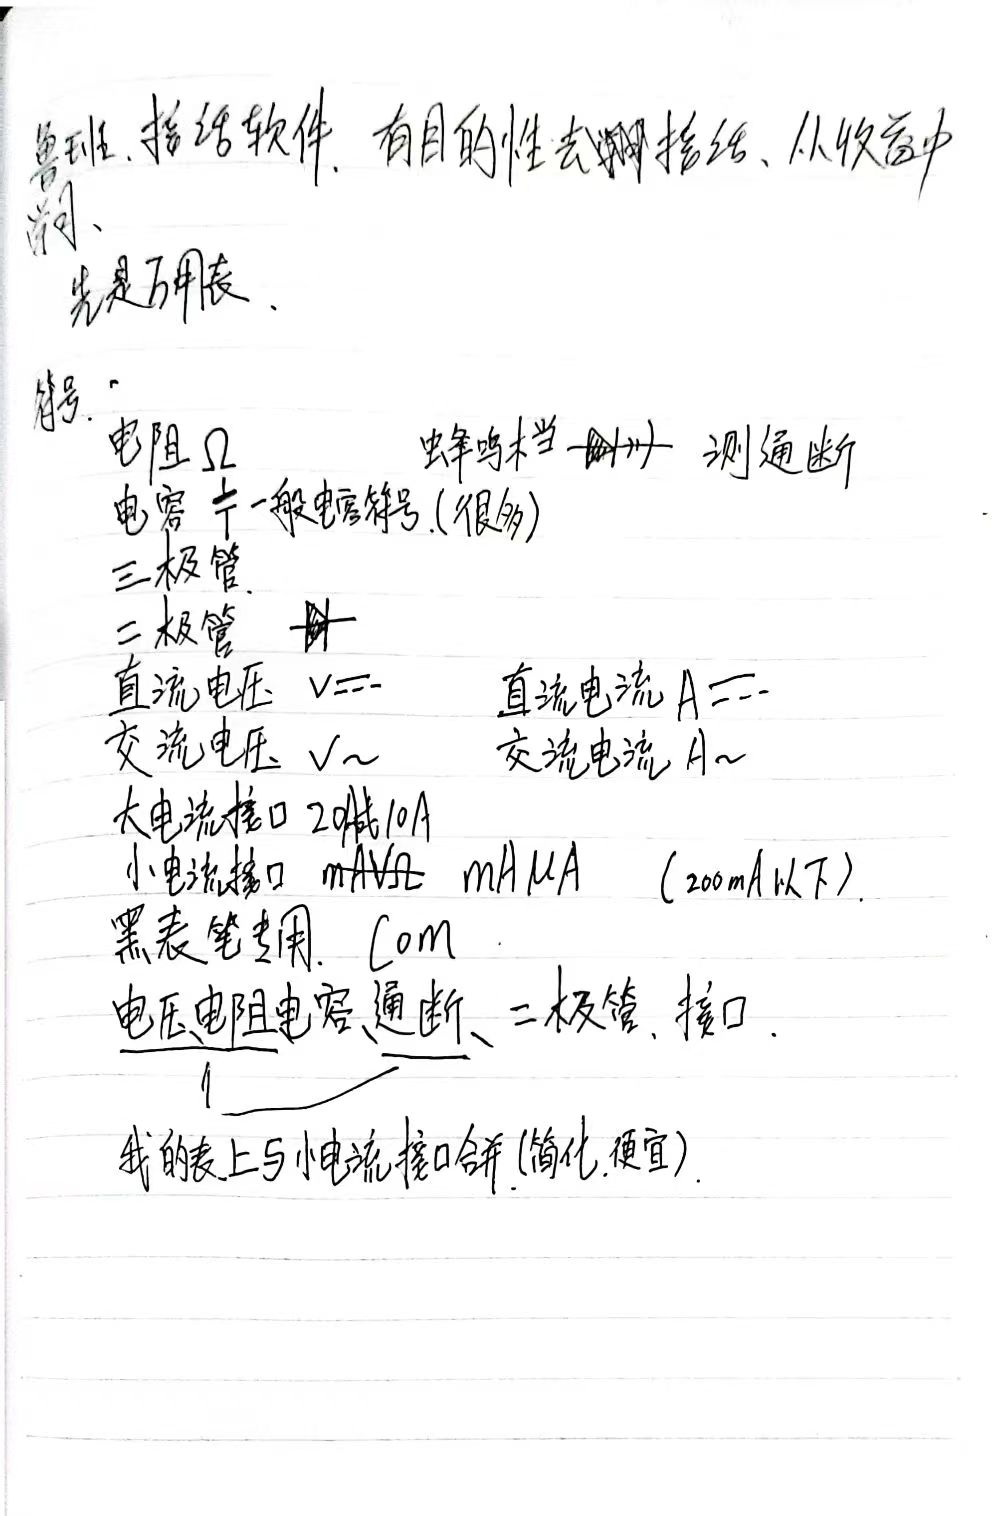 鲁班、接活软件、有目的性去接活、从收益中
先是万用表.
符号.
电阻 Ω 蜂鸣档 测通断
电容 一般电容符号.(很多)
三极管.
二极管
直流电压 V 直流电流 A
交流电压 V~ 交流电流 A~
大电流接口 20A或10A
小电流接口 mAVΩ mA μA (200mA以下).
黑表笔专用. Com
电压、电阻、电容、通断、二极管、接口.
我的表上与小电流接口合并.(简化.便宜).